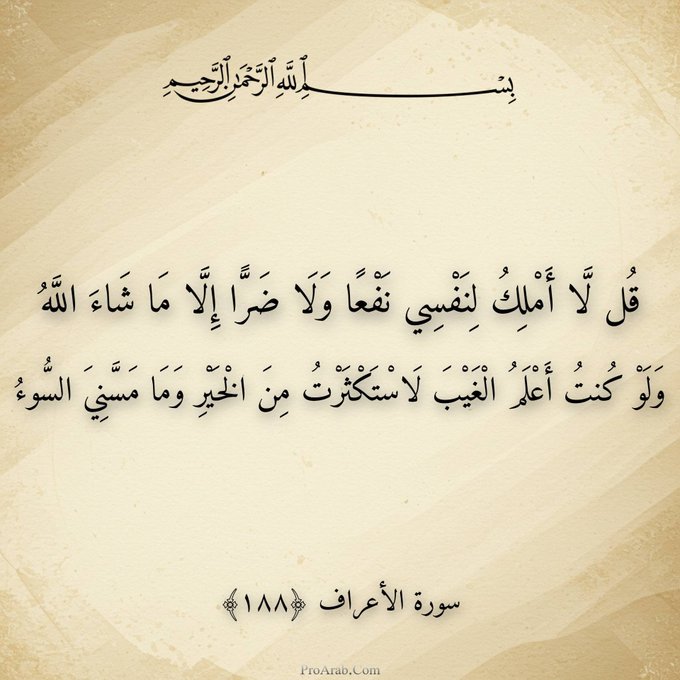 بِسْمِ ٱللَّهِ ٱلرَّحْمَٰنِ ٱلرَّحِيمِ
قُل لَّا أَمْلِكُ لِنَفْسِي نَفْعًا وَلَا ضَرًّا إِلَّا مَا شَاءَ اللَّهُ
وَلَوْ كُنتُ أَعْلَمُ الْغَيْبَ لَاسْتَكْثَرْتُ مِنَ الْخَيْرِ وَمَا مَسَّنِيَ السُّوءُ
سورة الأعراف ﴿١٨٨﴾
ProArab.Com